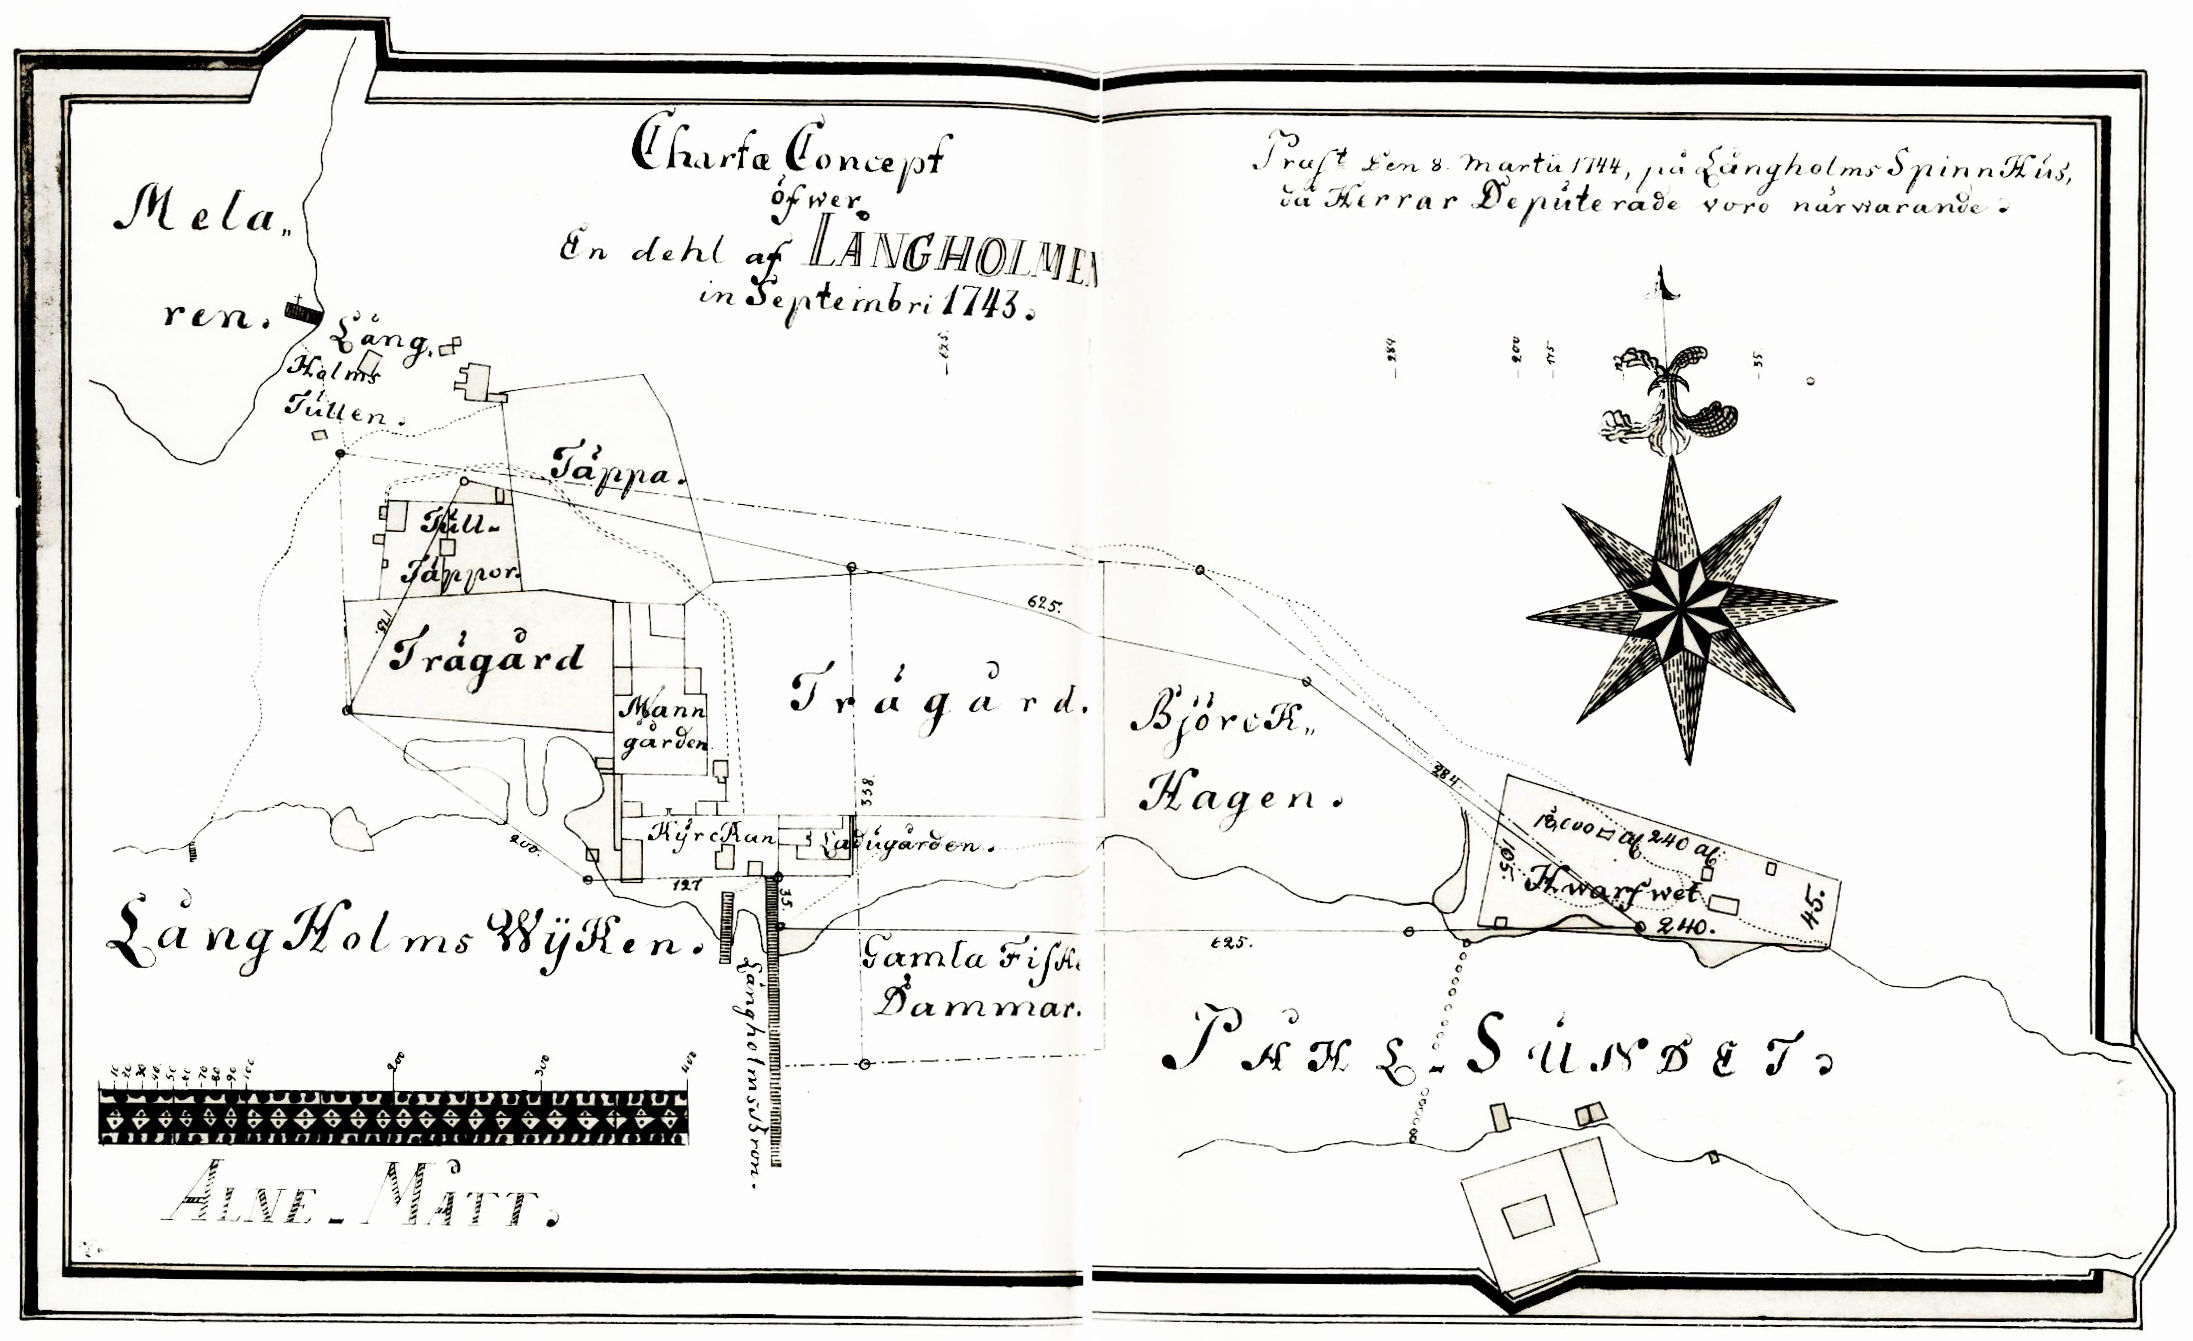 Charta Concept
öfwer
En dehl af LÅNGHOLMEN
in Septembri 1743.
Præst. den 8. Martii 1744, på Långholms SpinnHus,
då Herrar Deputerade voro närwarande.
Mela„
ren.
Lång.
Holms
Tullen.
125.
284
200
175
127
35.
Täppa.
Tull-
Täppor.
625.
175.
Trägård
Trägård.
Mann
gården
Björck„
Hagen.
338.
284
Kyrckan
Ladugården.
200.
127
35.
18,000 □ al. 240 al.
105.
Hwarfwet
45.
240.
LångHolms Wyken.
Gamla Fiske
Dammar.
625.
Långholmsbron.
PÅHL-SUNDET.
10 20 30 40 50 60 70 80 90 100 200 300 400
ALNE-MÅTT.